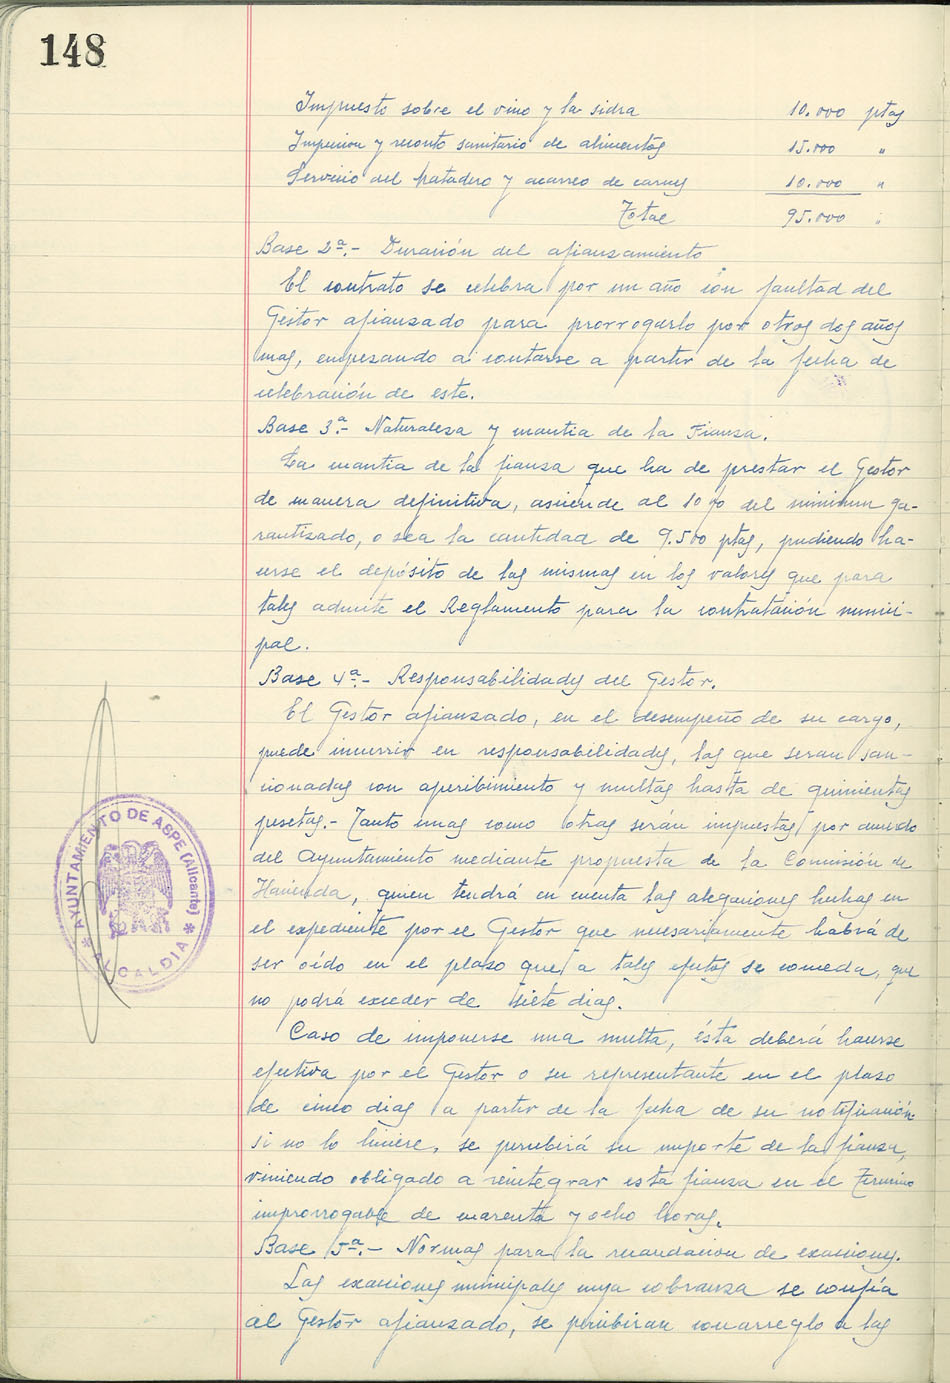 148
Impuesto sobre el vino y la sidra 10.000 ptas
Inspeccion y reconto sanitario de alimentos 15.000 "
Servicio del Matadero y acarreo de carnes 10.000 "
Total 95.000 "
Base 2ª.- Duración del afianzamiento
El contrato se celebra por un año con facultad del
Gestor afianzado para prorrogarlo por otros dos años
mas, empezando a contarse a partir de la fecha de
celebración de este.
Base 3ª.- Naturaleza y cuantia de la Fianza.
La cuantia de la fianza que ha de prestar el Gestor
de manera definitiva, asciende al 10% del minimun ga-
rantizado, o sea la cantidad de 9.500 ptas, pudiendo ha-
cerse el depósito de las mismas en los valores que para
tales admite el Reglamento para la contratación munici-
pal.
Base 4ª.- Responsabilidades del Gestor.
El Gestor afianzado, en el desempeño de su cargo,
puede incurrir en responsabilidades, las que seran san-
cionadas con apercibimiento y multas hasta de quinientas
pesetas.- Tanto unas como otras serán impuestas por acuerdo
del Ayuntamiento mediante propuesta de la Comisión de
Hacienda, quien tendrá en cuenta las alegaciones hechas en
el expediente por el Gestor que necesariamente habrá de
ser oído en el plazo que a tales efectos se conceda, que
no podrá exceder de siete dias.
Caso de imponerse una multa, ésta deberá hacerse
efectiva por el Gestor o su representante en el plazo
de cinco dias a partir de la fecha de su notificación.
si no lo hiciere, se percibirá su importe de la fianza,
viniendo obligado a reintegrar esta fianza en el Termino
improrrogable de cuarenta y ocho horas.
Base 5ª.- Normas para la recaudacion de exacciones.
Las exacciones municipales cuya cobranza se confía
al Gestor afianzado, se percibiran con arreglo a las
AYUNTAMIENTO DE ASPE (Alicante)
* ALCALDIA *